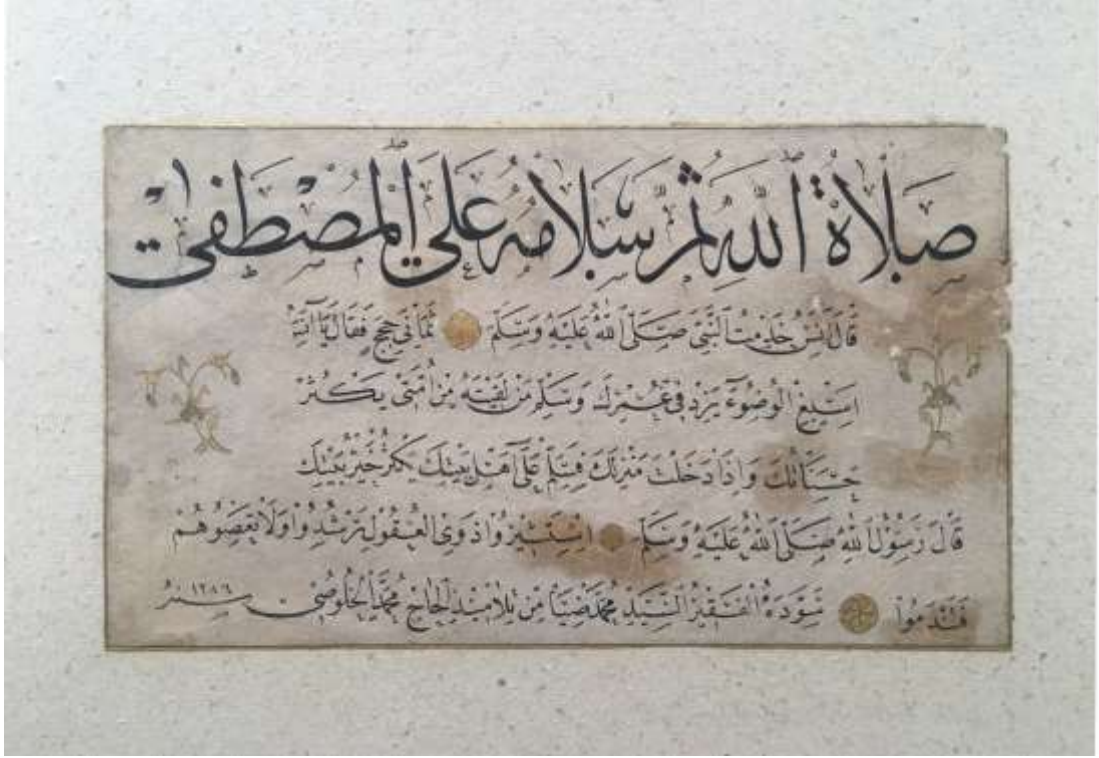 صَلَاةُ اللّٰهِ ثُمَّ سَلَامُهُ عَلَى الْمُصْطَفَى
قَالَ أَنَسٌ خَدَمْتُ النَّبِيَّ صَلَّى اللّٰهُ عَلَيْهِ وَسَلَّمَ ثَمَانِيَ حِجَجٍ فَقَالَ يَا أَنَسُ
اَسْبِغِ الْوُضُوءَ يَزِدْ فِي عُمْرِكَ وَسَلِّمْ مَنْ لَقِيْتَهُ مِنْ أُمَّتِي يَكْثُرْ
حَسَنَاتُكَ وَاِذَا دَخَلْتَ مَنْزِلَكَ فَسَلِّمْ عَلَى أَهْلِ بَيْتِكَ يَكْثُرْ خَيْرُ بَيْتِكَ
قَالَ رَسُولُ اللّٰهِ صَلَّى اللّٰهُ عَلَيْهِ وَسَلَّمَ اِسْتَشِيرُوا ذَوِي الْعُقُولِ تَرْشُدُوا وَلَا تَعْصُوهُمْ
فَتَنْدَمُوا سَوَّدَهُ الْفَقِيرُ السَّيِّدُ مُحَمَّد ضِيَا مِنْ تَلَامِيذِ الْحَاجِّ مُحَمَّد الْخُلُوصِي سنة ١٢٨٦